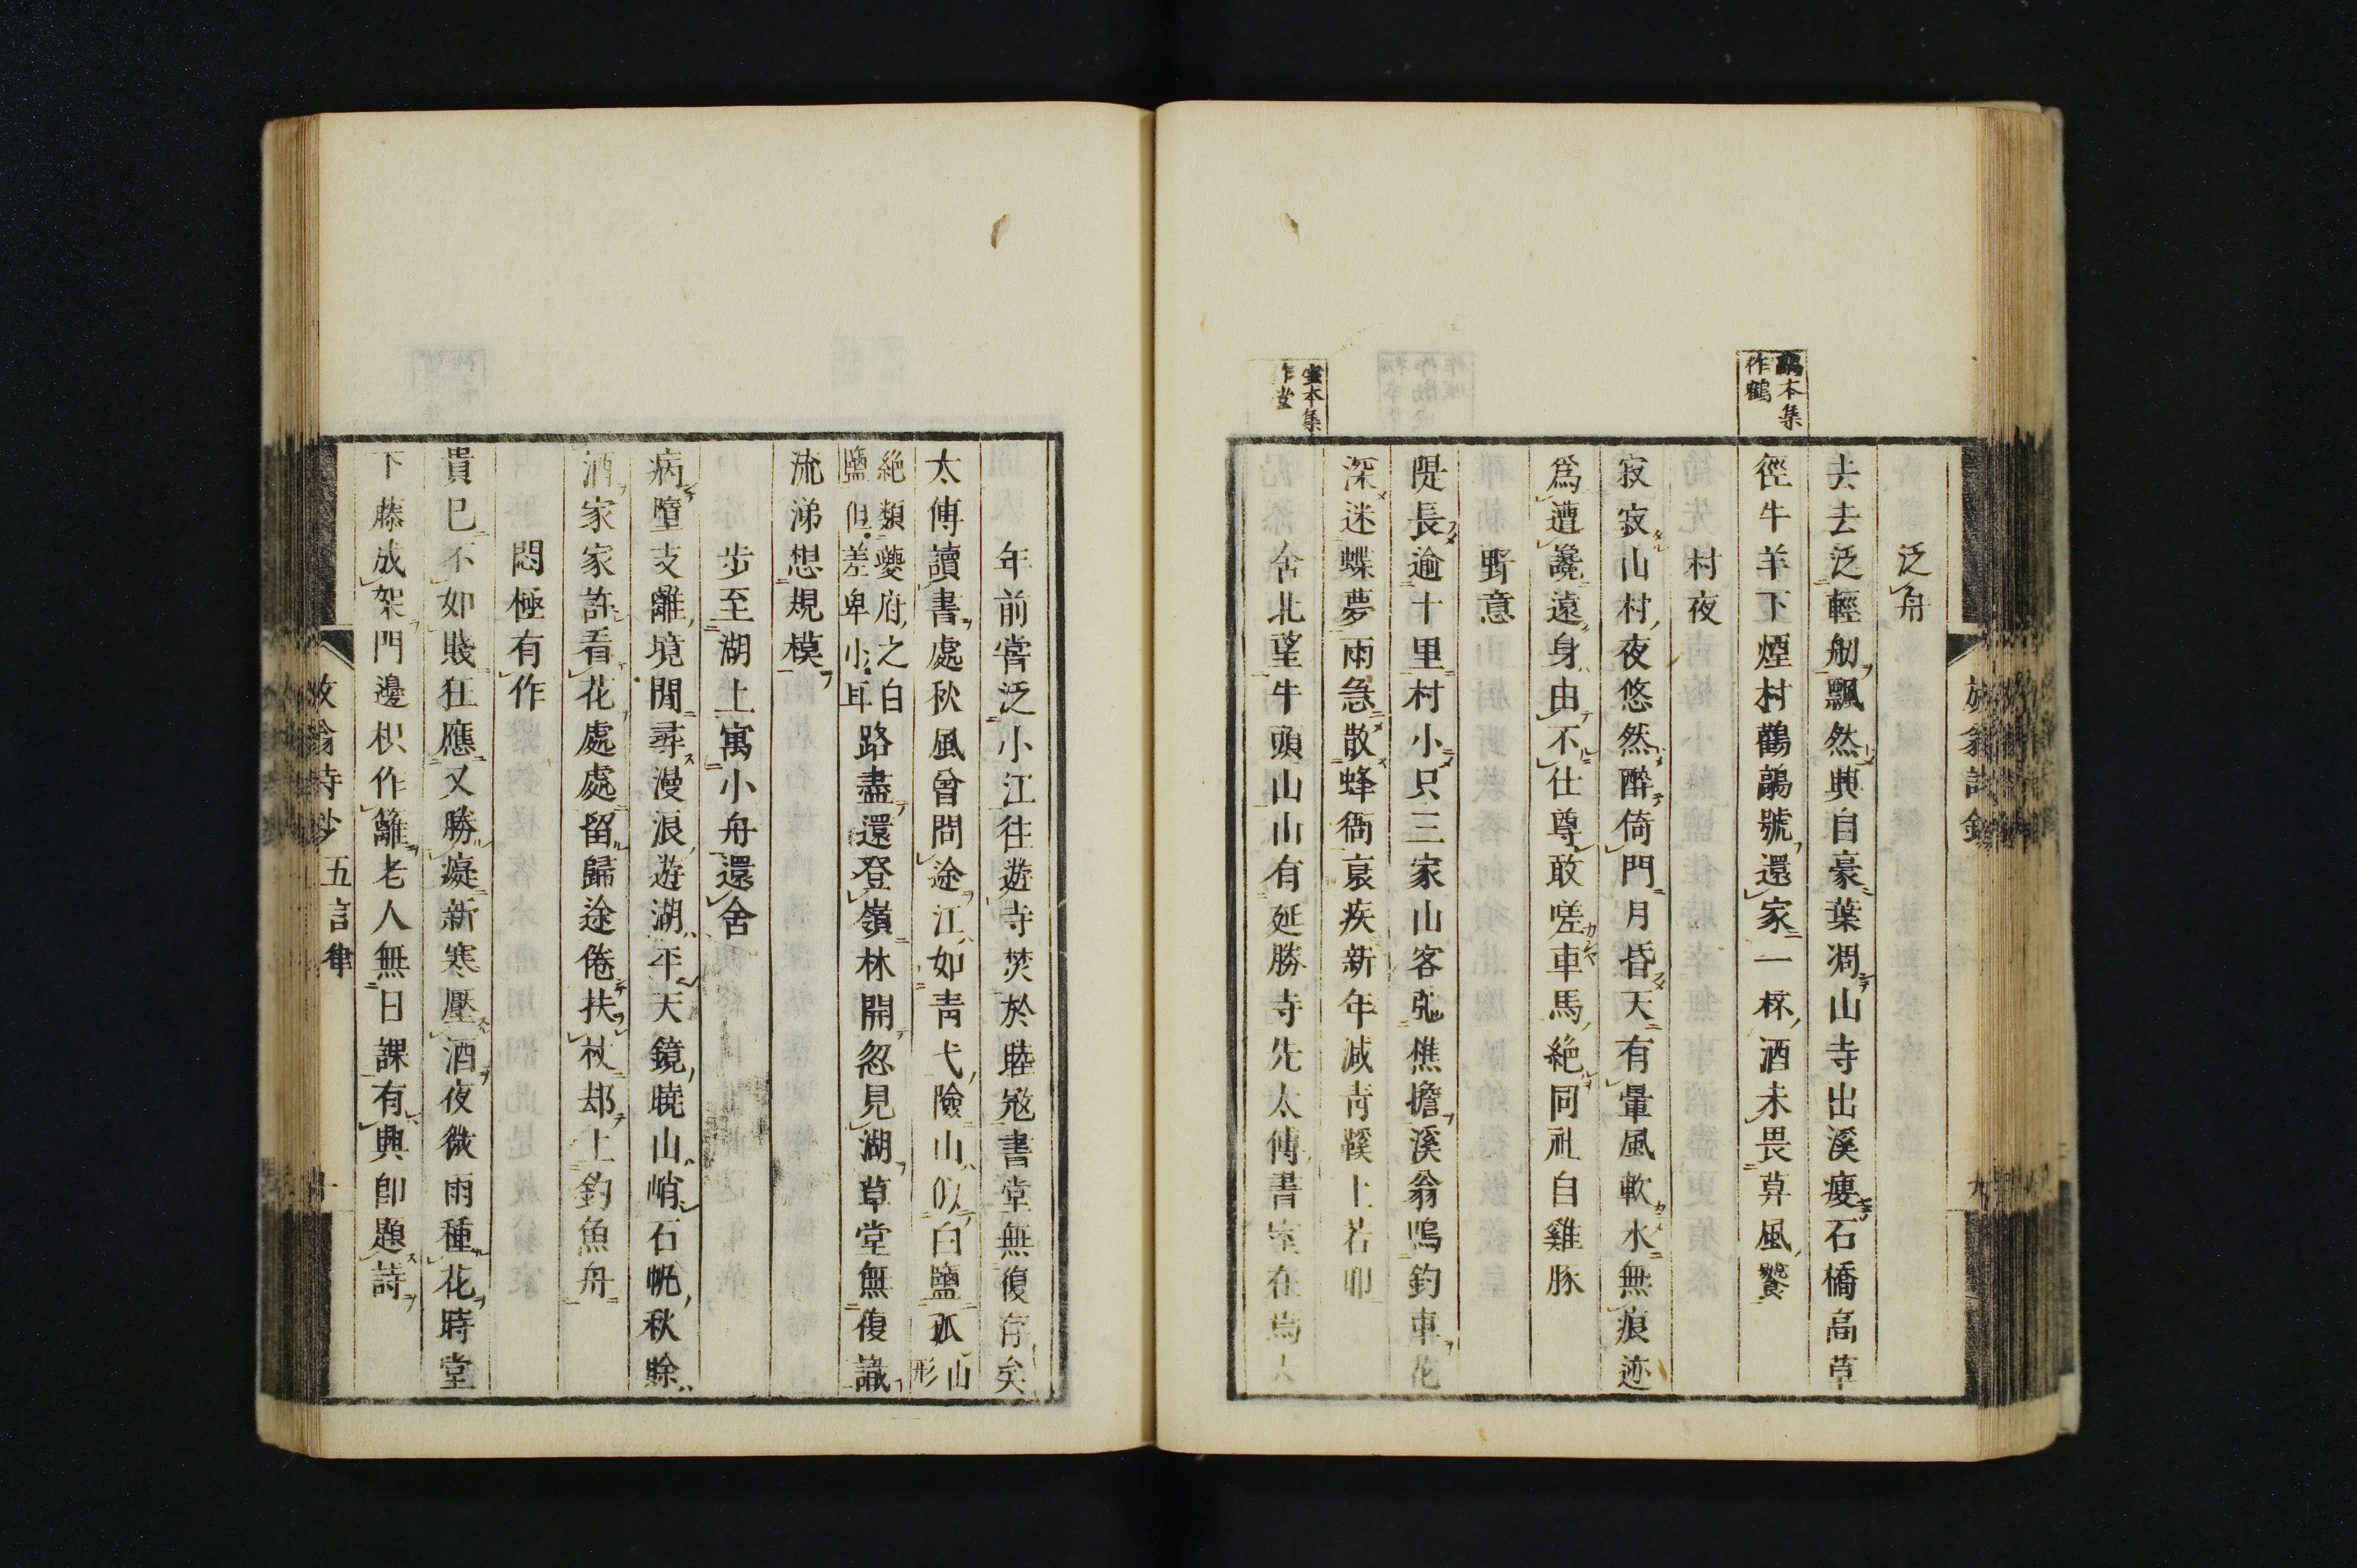 鶮本集
作鶴
室本集
作堂
泛舟
去去泛輕舠飄然興自豪葉凋山寺出溪瘦石橋高草
徑牛羊下煙村鸛鶮號還家一杯酒未畏草風饕
村夜
寂寂山村夜悠然醉倚門月昏天有暈風軟水無痕迹
爲遭讒遠身由不仕尊敢嗟車馬絕同社自雞豚
野意
隄長逾十里村小只三家山客弛樵擔溪翁鳴釣車花
深迷蝶夢雨急散蜂衙衰疾新年减靑鞵上若
舍北望牛頭山山有延勝寺先太傅書室在焉
年前嘗泛小江往遊寺焚於睦寇書堂無復存矣
太傅讀書處秋風曾問途江如靑弋險山似白鹽孤山形
絶類夔府之白
鹽但差卑小耳
路盡還登嶺林開忽見湖草堂無復識
流涕想規模
步至湖上寓小舟還舍
病墮支離境閒尋漫浪遊湖平天鏡曉山峭石帆秋賒
酒家家許看花處處留歸途倦扶杖却上釣魚舟
悶極有作
貴已不如賤狂應又勝癡新寒壓酒夜微雨種花時堂
下藤成架門邊枳作籬老人無日課有興卽題詩
放翁詩鈔
五言律